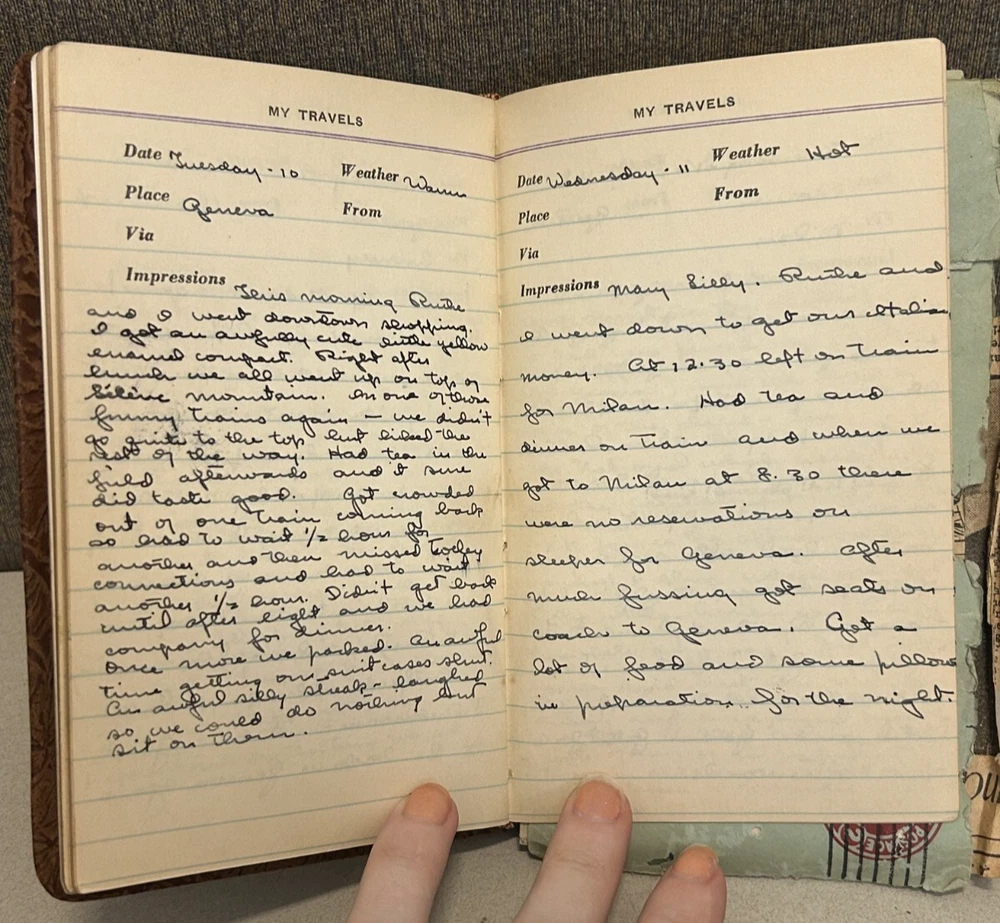 MY TRAVELS
Date Tuesday - 10 Weather Warm
Place Geneva From
Via
Impressions This morning Ruthe
and I went downtown shopping.
I got an awfully cute little yellow
enamel compact. Right after
lunch we all went up on top of
mountain. In one of those
funny trains again — we didn't
go quite to the top but hiked the
rest of the way. Had tea in the
field afterwards and it sure
did taste good. Got crowded
out of one train coming back
so had to wait 1/2 hour for
another and then missed trolley
connections and had to wait
another 1/2 hour. Didn't get back
until after eight and we had
company for dinner.
Once more we packed. An awful
time getting our suitcases shut.
An awful silly streak - laughed
so we could do nothing but
sit on them.
MY TRAVELS
Date Wednesday - 11 Weather Hot
Place From
Via
Impressions Mary Billy. Ruthe and
I went down to get our Italian
money. At 12.30 left on train
for Milan. Had tea and
dinner on train and when we
got to Milan at 8.30 there
were no reservations on
sleeper for Geneva. After
much fussing got seats on
coach to Geneva. Got a
lot of food and some pillows
in preparation for the night.